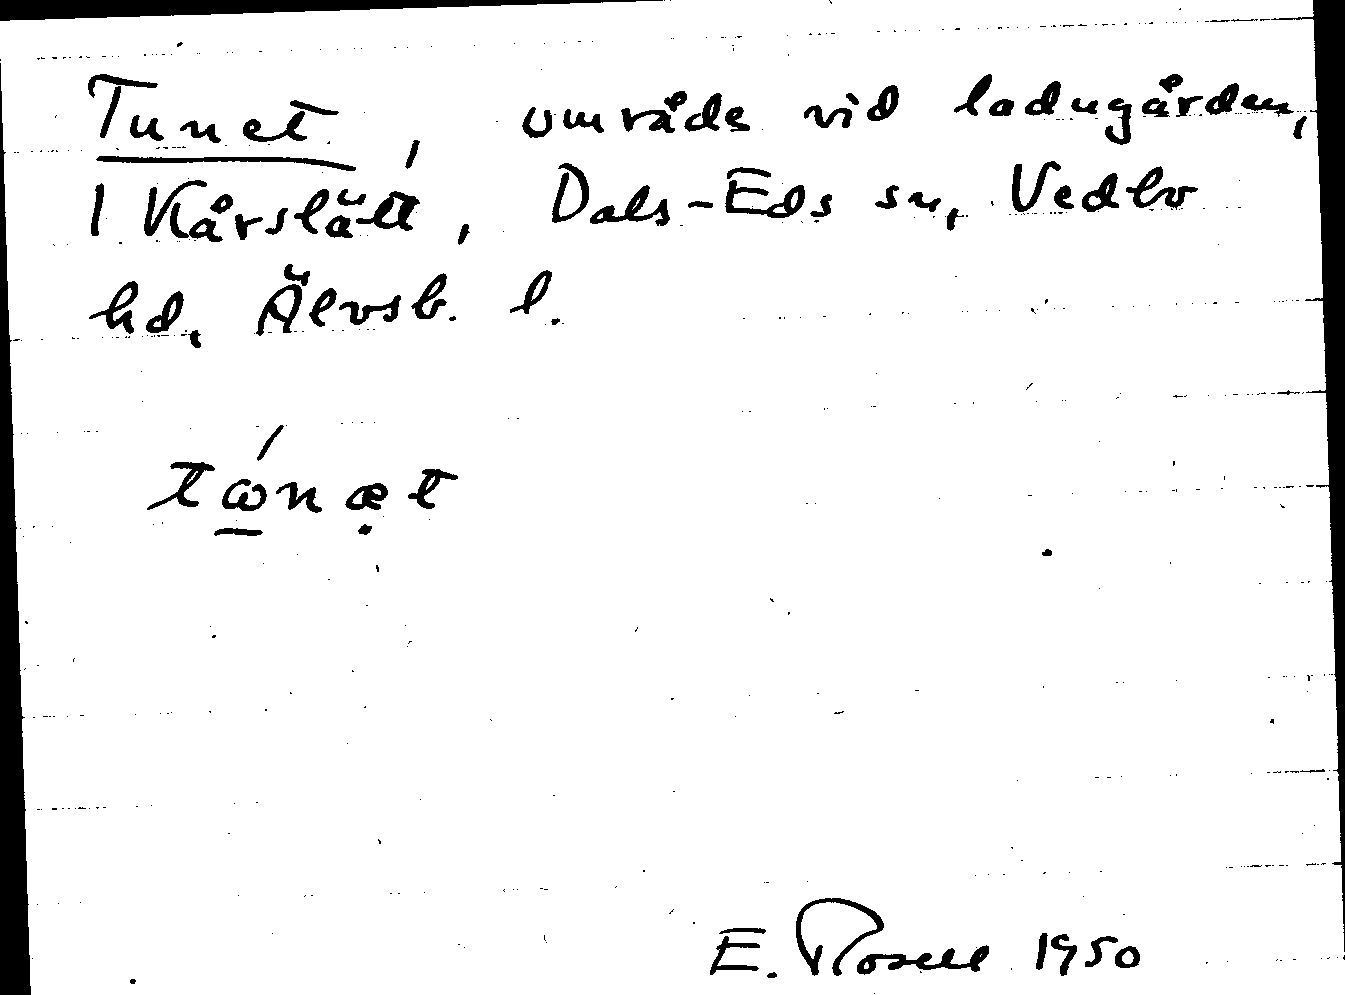 Tunet, område vid ladugården,
1 Kårslätt, Dals-Eds sn, Vedbo
hd, Älvsb. l.
tώ̲næ̣t
E. Rosell 1950